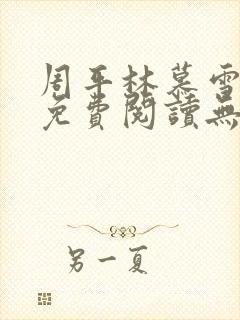 周平林慕雪
免費閱讀無
另一夏